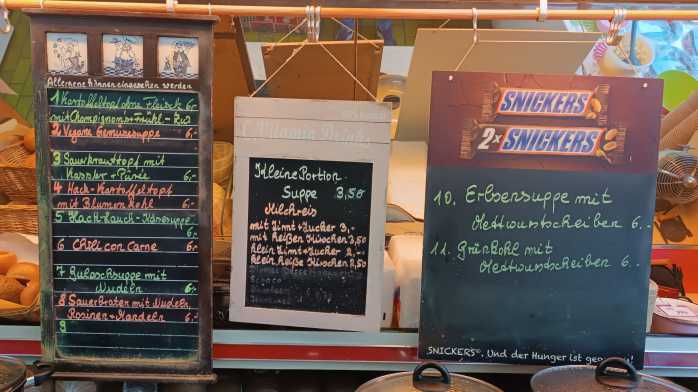 Allergene können eingesehen werden
1 Kartoffeltopf ohne Fleisch 6.-
mit Champignons + Frühl - Zw
2 Vegane Gemüsesuppe 6.-
3 Sauerkrauttopf mit
Kassler + Püree 6.-
4 Hack-Kartoffeltopf
mit Blumenkohl 6.-
5 Hack-Lauch-Käsesuppe
6.-
6 Chili con Carne 6.-
7 Gulaschsuppe mit
Nudeln 6.-
8 Sauerbraten mit Nudeln,
Rosinen + Mandeln 6.-
9
Kleine Portion
Suppe 3,50
Milchreis
mit Zimt + Zucker 3,-
mit heißen Kirschen 3,50
klein Zimt + Zucker 2,-
klein heiße Kirschen 2,50
SNICKERS
2x SNICKERS
10. Erbsensuppe mit
Mettwurstscheiben 6.-
11. Grünkohl mit
Mettwurstscheiben 6.-
SNICKERS®. Und der Hunger ist